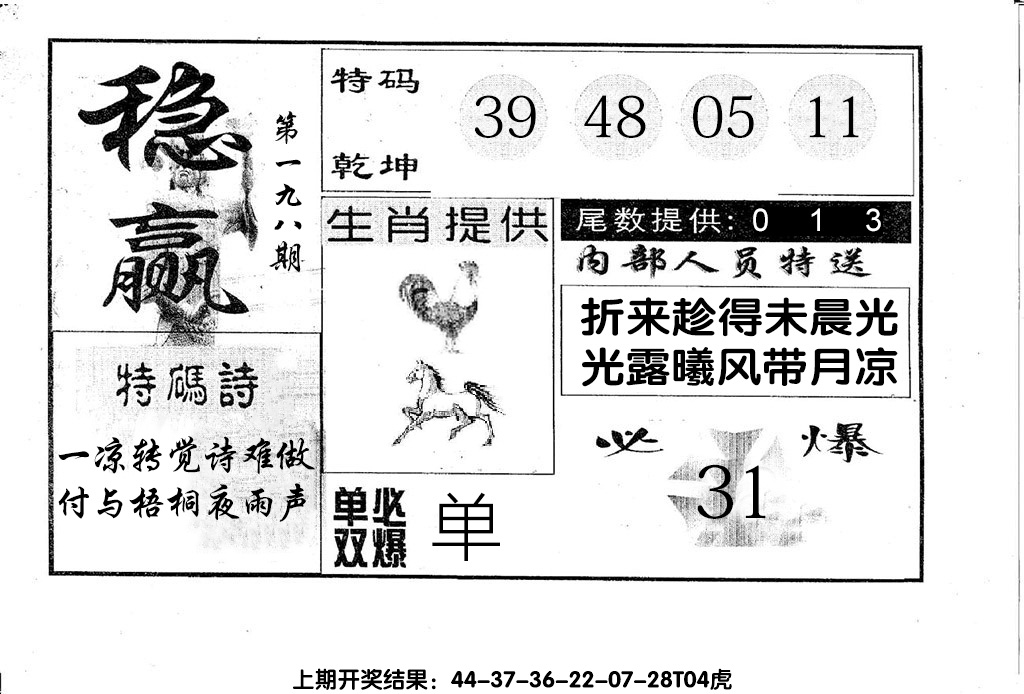 稳赢
第一九八期
特码
乾坤
39 48 05 11
生肖提供
尾数提供: 0 1 3
内部人员特送
折来趁得未晨光
光露曦风带月凉
特碼詩
一凉转觉诗难做
付与梧桐夜雨声
必爆
31
单双
必爆
单
上期开奖结果：44-37-36-22-07-28T04虎